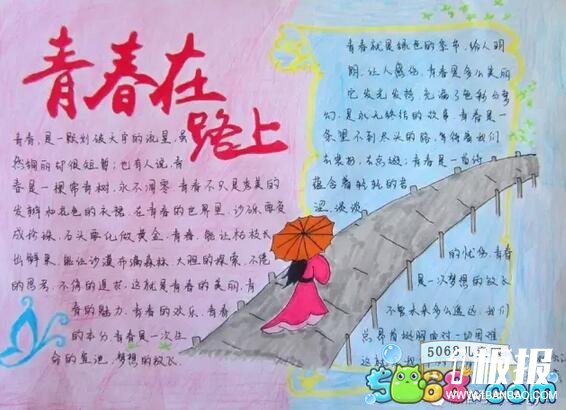 青春在
路上
青春,是一颗划破天宇的流星,虽
然绚丽却很短暂;也有人说,青
春是一棵常青树,永不凋零.青春不只是秀美的
发辫和花色的衣裙,在青春的世界里,沙砾要变
成珍珠,石头要化做黄金.青春,能让枯枝长
出鲜果,能让沙漠布满森林,大胆的探索,不倦
的思考,不停的追求,这就是青春的美丽,青
春的魅力,青春的欢乐,青春
的本分.青春是一次生
命的燃,梦想的放飞
青春就是绿色的季节,给人明
朗,让人感伤,青春是多么美丽
它发光发热,充满了色彩与梦
幻,是永无终结的故事,青春是一
条望不到尽头的路,等待着我们
去发掘,去点缀;青春是一首诗
蕴含着
淡淡
的忧伤,青春
是一次梦想的放飞
不管未来多么遥远,我们
总昂首挺胸面对一切困难
5068儿
5068.com
板报
www.TBANBAO.COM